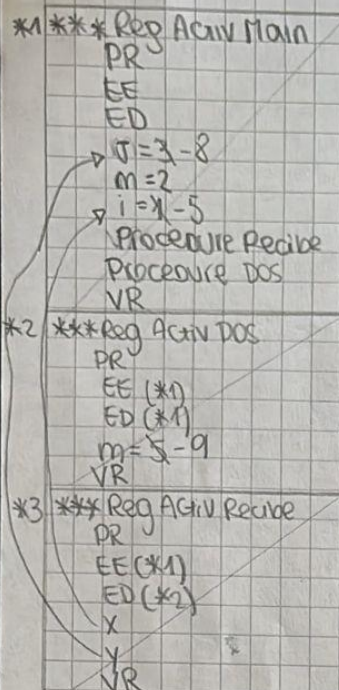 *1 *** Reg Activ Main
PR
EE
ED
J = 3 - 8
m = 2
i = 1 - 5
Procedure Recibe
Procedure DOS
VR
*2 *** Reg Activ DOS
PR
EE (*1)
ED (*1)
m = 5 - 9
VR
*3 *** Reg Activ Recibe
PR
EE (*1)
ED (*2)
X
Y
VR